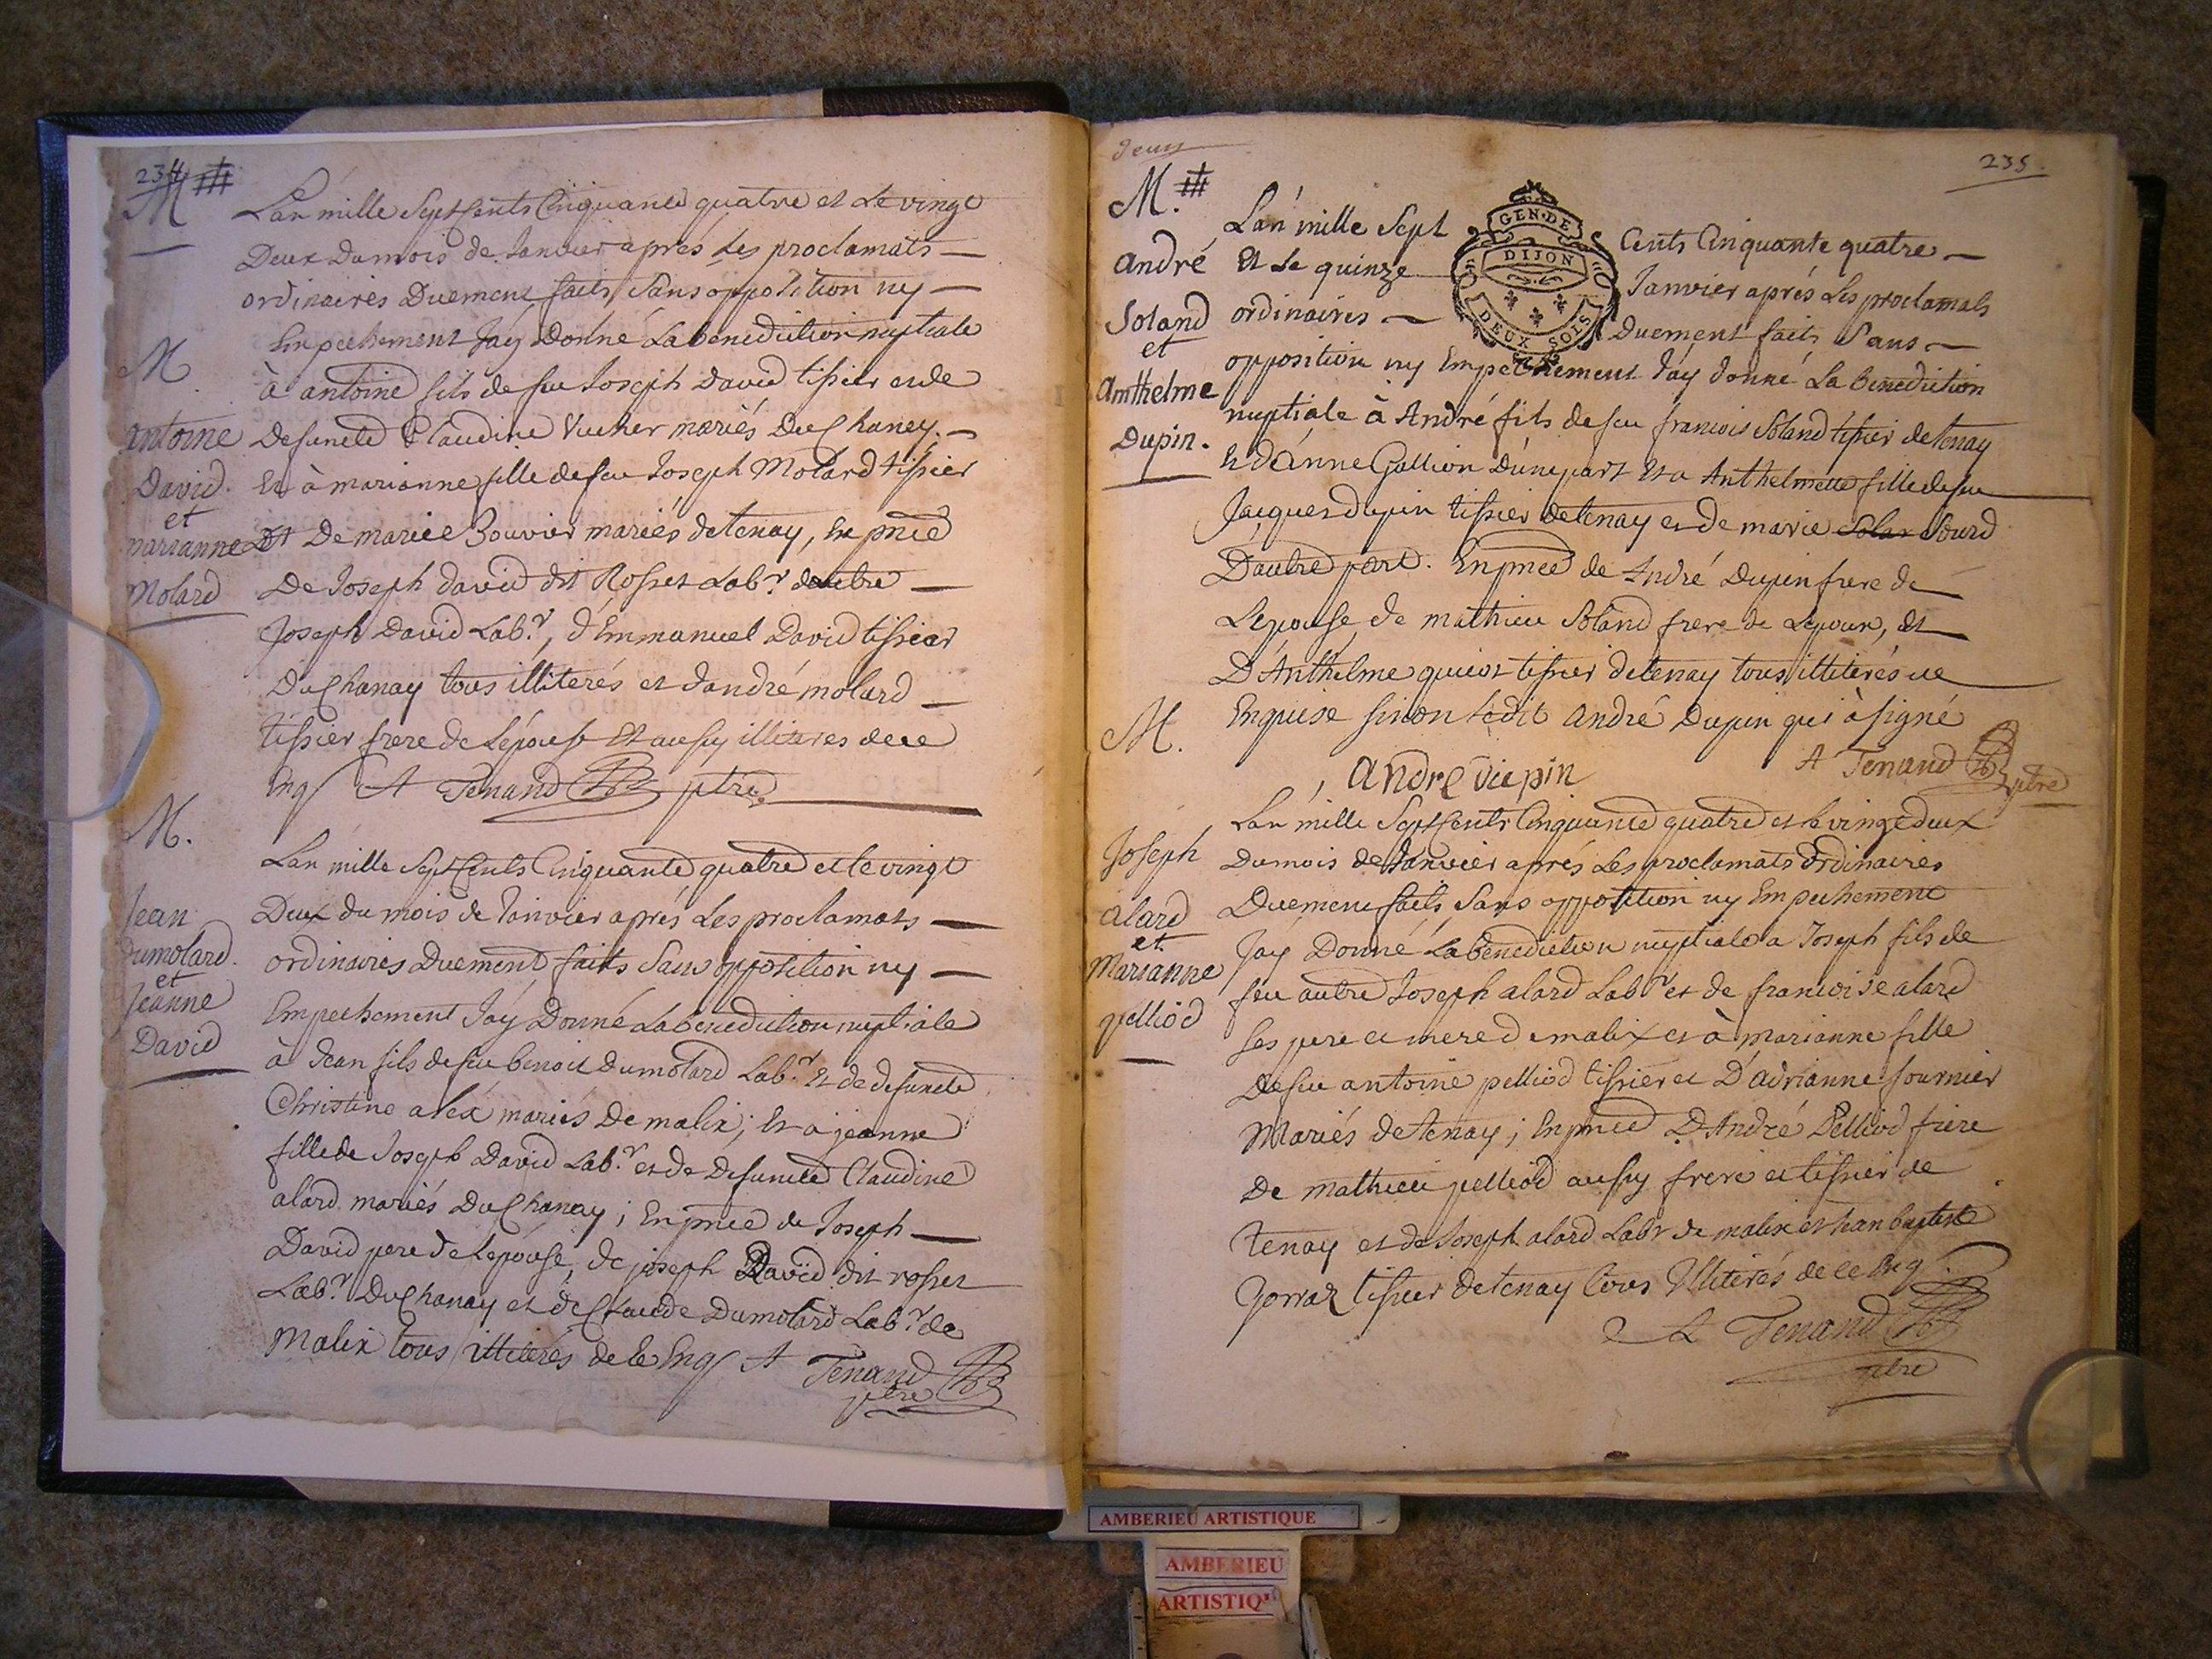 234
M
Lan mille Sept Cents Cinquante quatre et Le vingt
Deux Du mois de Janvier aprés Les proclamats
ordinaires Duement faits Sans opposition ny
Empechement Jay Donné La benediction nuptiale
M
à antoine fils de feu Joseph David tissier et de
antoine
David
et
marianne
Molard
defuncte Claudine Vucher mariés Du Chaney
Et à marianne fille de feu Joseph Molard tissier
Et De marie Bouvier mariés de tenay, En pnce
De Joseph david dit Rosset Labr. dautre
Joseph David Labr., d'Emmanuel David tissier
Du Chanay tous illiterés et dandré molard
tissier frere de Lépouse Et aussy illiteres de ce
Enq A Tenand ptre
M.
Jean
Dumolard
et
Jeanne
David
Lan mille Sept Cents Cinquante quatre et le vingt
Deux du mois de Janvier aprés Les proclamats
ordinaires Duement faits Sans opposition ny
Empechement Jay Donné La benediction nuptiale
à Jean fils de feu benoit Dumolard Labr. Et de defuncte
Christine alex mariés De malix; Et a jeanne
fille de Joseph David Labr. et de Defuncte Claudine
alard mariés Du Chanay; En pnce de Joseph
David pere de Lepouse, de joseph David dit rosset
Labr. Du Chanay et de Claude Dumolard Labr. de
Malix tous illiterés de ce Enq A Tenand
ptre
deux
235.
M.
André
Soland
et
Anthelme
Dupin.
Lan mille Sept Cents Cinquante quatre
Et Le quinze Janvier aprés Les proclamats
ordinaires Duement faits Sans
GEN. DE
DIJON
DEUX SOLS
opposition ny Empechement Jay donné La benediction
nuptiale à André fils de feu francois Soland tissier de tenay
Et d'anne Gallion Dune part Et a Anthelmette fille de feu
Jacques dupin tissier de tenay et de marie Solan Sourd
Dautre part. En pnce de André Dupin frere de
Lepouse de mathieu Soland frere de Lepoux, Et
D'Anthelme quiot tissier de tenay tous illiterés de
Enquise sinon Ledit André Dupin qui à signé
André Dupin
A Tenand
ptre
M.
Joseph
alard
et
Marianne
pelliod
Lan mille Sept Cents Cinquante quatre et le vingt deux
Du mois de Janvier aprés Les proclamats Ordinaires
Duement faits Sans opposition ny Empechement
Jay Donné La benediction nuptiale a Joseph fils de
feu autre Joseph alard Labr et de francoise alard
ses pere et mere de malix et à marianne fille
de feu antoine pelliod tissier et D'adrianne fournier
Mariés de tenay; En pnce D'André Pelliod frere
De mathieu pelliod aussy frere et tissier de
tenay et de Joseph alard Labr de malix et Jean baptiste
Gorraz tissier de tenay tous Illiterés de ce Enq.
A Tenand
ptre
AMBERIEU ARTISTIQUE
AMBERIEU
ARTISTIQ